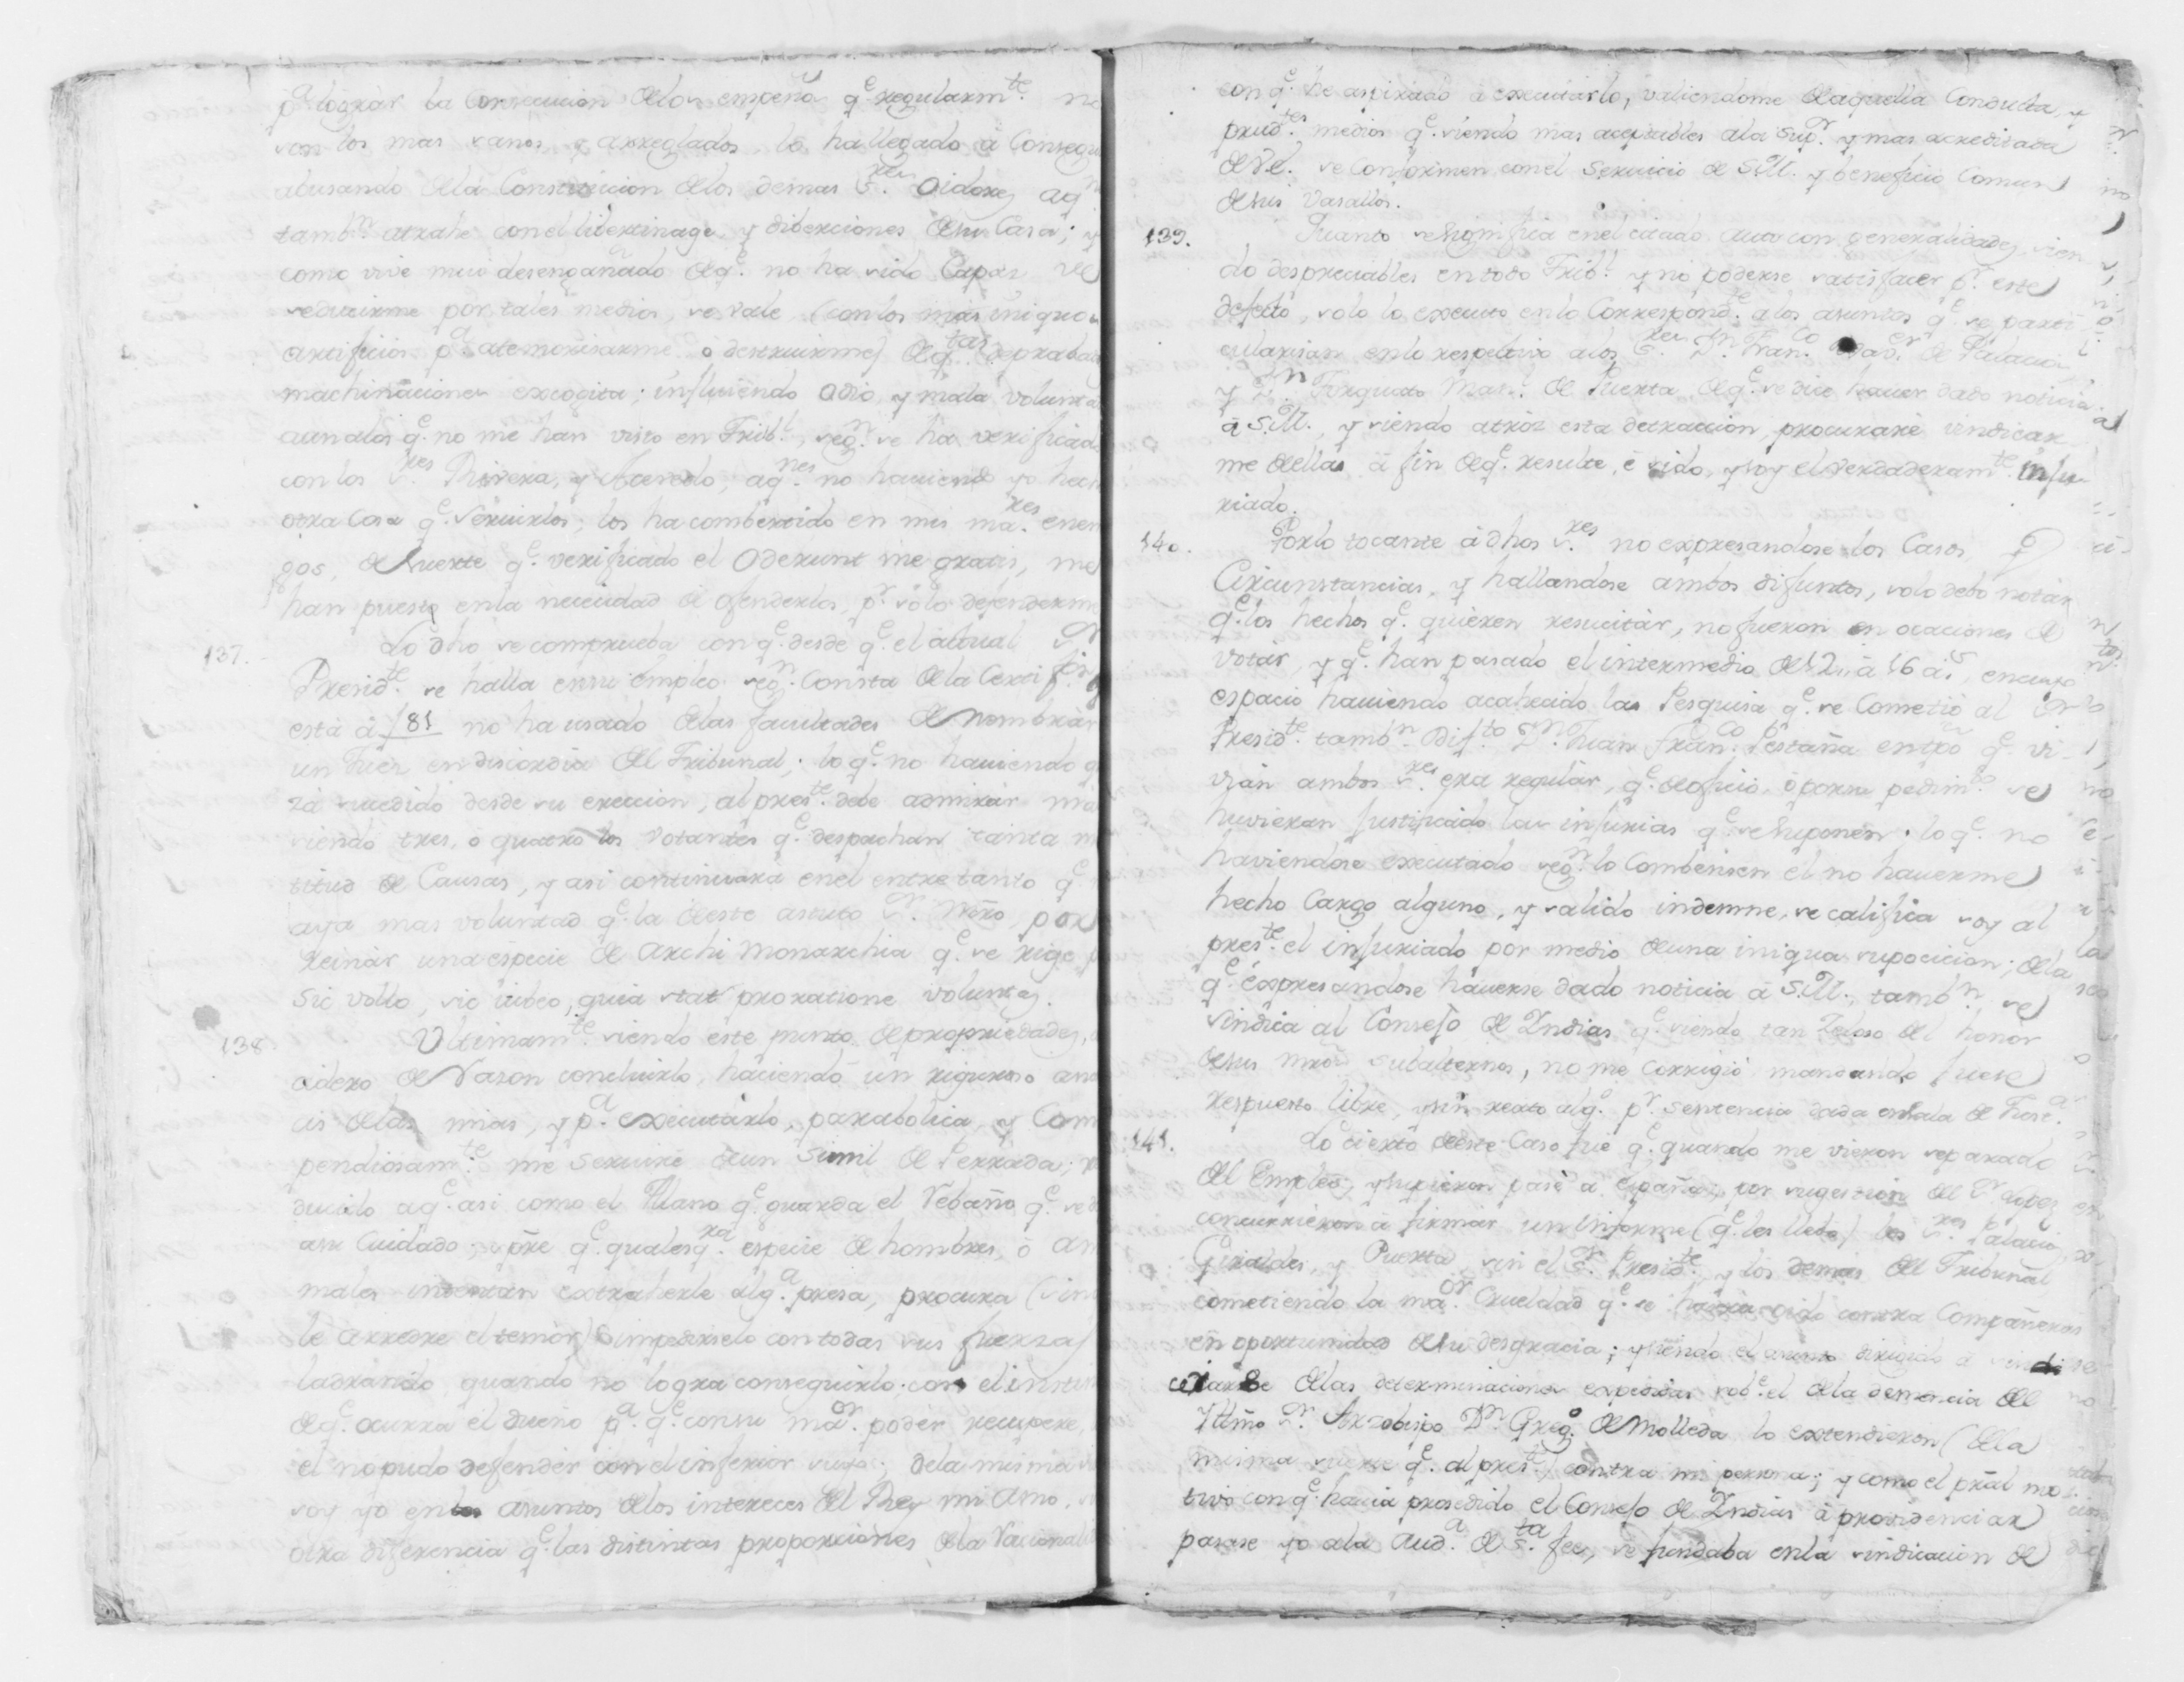 pa. lograr la Consecucion delos empeños qe. regularmte. no
son los mas sanos, y arreglados, lo ha llegado à Consegu
abusando dela Constitucion delos demas Sres. Oidores aq
tambn. atrahe con el libertinage, y diberciones desu Casa; y
como vive mui desengañado deqe. no ha sido Capaz de
seducirme por tales medios, se vale (con los mas iniquos
artificios pa. atemorisarme ò destruirme) deqtas. reprabada
machinaciones excogita: influiendo odio, y mala volunta
aun alos qe. no me han visto en Tribl., segn. se ha verificado
con los Sres. Rivera, y Acevedo, aqnes. no haviendo yo hecho
otra Cosa qe. Servirlos, los ha combertido en mis mares. enem
gos, de suerte qe. verificado el Oderunt me gratis, me
han puesto enla necesidad de ofenderlos, pr. solo defenderme
137. Lo dho se comprueba con qe. desde qe. el actual Sr.
Presidte. se halla ensu empleo segn. Consta dela Certifon. q
està à f 81 no ha usado delas facultades de nombrar
un Juez en discordia del Tribunal; lo qe. no haviendo q
zà sucedido desde su ereccion, al preste. debe admirar ma
siendo tres, o quatro los Votantes qe. despachan tanta m
titud de Causas, y asi continuará enel entretanto qe.
aya mas voluntad qe. la deeste astuto Sr. Mro, por
reinàr una especie de Archi Monarchia qe. se rige p
Sic vollo, sic iubeo, quia stat pro ratione voluntas.
138 Ultimamte. siendo este punto de propriedades,
cidero de Vason concluirlo, haciendo un riguroso ana
cis delas mias, y pa. executàrlo, parabolica, y Com
pendiosamte. me Serviré deun Simil de Perrada; re
ducido aqe. asi como el Alano qe. guarda el Rebaño qe. se d
asu Cuidado; sipre qe. qualesqra. especie de hombres, ò an
males intentan extraherle alga. presa, procura (sin
le arredre el temòr) impedirselo con todas sus fuerzas
ladrando quando no logra conseguirlo, con el instin
deqe. ocurra el dueño pa. qe. consu maor. podèr recupere,
el no pudo defendèr con el inferior suyo; dela misma
soy yo enlos asuntos delos intereces del Rey mi Amo, s
otra diferencia qe. las distintas proporciones dela Racionali
con qe. he aspirado à executàrlo, valiendome deaquella Conducta, y
prudtes. medios qe. siendo mas aceptables ala Supr. y mas acreditada
de Vs. se Conformen con el Servicio de S.M. y beneficio Comun
desus Vasallos.
139. Quanto se significa enel citado auto con generalidades, sien
do despreciables en todo Tribl. y no poderse satisfacer pr. este
defecto, solo lo executo en lo Correspondte. a los asuntos qe. se parti
cularisan en lo respectivo alos Sres. Dn. Franco. de Palacio
y Dn. Torquato Mar. de Puerta, deqe. se dice haver dado noticia
à S.M., y siendo atròz esta detraccion, procuraré vindicar
me deellas à fin deqe. resulte, è sido, y soy el verdaderamte. infu
riado.
140. Por lo tocante à dhos Sres. no expresandose los Casos, y
Circunstancias, y hallandose ambos difuntos, solo debo notàr
qe. los hechos qe. quieren resucitàr, no fueron en ocaciones de
votàr, y qe. han pasado el intermedio de 12 à 16 as. encuyo
espacio haviendo acahecido las Pesquisa qe. se Cometió al Sr.
Presidte. tambn. difto. Dn. Juan Franco. Pestaña entpo qe. vi
vian ambos Sres. era regulàr, qe. deoficio, ò porsu pedimto. se
huvieran Justificado las injurias qe. se suponen: lo qe. no
haviendose executado segn. lo Combensen el no haverme
hecho Cargo alguno, y salido indemne, se califica soy al
preste. el injuriado por medio deuna iniqua suposicion; dela
qe. expresandose haverse dado noticia à S.M., tambn. se
vindica al Consejo de Indias qe. siendo tan Zeloso del honor
desus mros subalternos, no me corrigió mandando fuese
repuesto libre, y sin reato algo. pr. sentencia dada en Sala de Justa.
141. Lo cierto deeste Caso fue qe. quando me vieron separado
del Empleo, y supieron pasè à España; por sugestion del Sr. Lopez
concurrieron à firmàr un Informe (qe. les lleba) los Sres. Palacio,
Giraldes, y Puerta, sin el Sr. Presidte. y los demas del Tribunal
cometiendo la maor. Crueldad qe. se havia oido contra Compañeros
en oportunidad desu desgracia; y siendo el asunto dirigido à vindi
ciarse delas determinaciones expedidas sobe. el dela denuncia del
Yltmo Sr. Arzobispo Dn. Grego. de Molleda lo extendieron (dela
misma suerte qe. al preste.) contra mi persona; y como el prál mo
tivo con qe. havia prosedido el Consejo de Indias à providenciar
pasase yo ala Auda. de Sta. fee, se fundaba enla vindicacion de